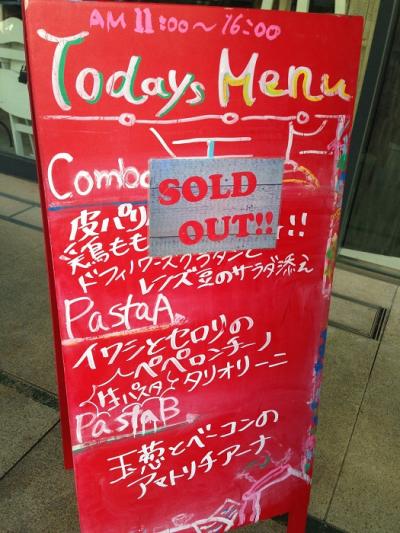 AM 11:00〜16:00
Todays Menu
Combo
SOLD
OUT!!
皮パリ
鶏もも !!
ドフィノワーズグラタンと
レンズ豆のサラダ添え
PastaA
イワシとセロリの
ペペロンチーノ
生パスタ タリオリーニ
PastaB
玉葱とベーコンの
アマトリチアーナ